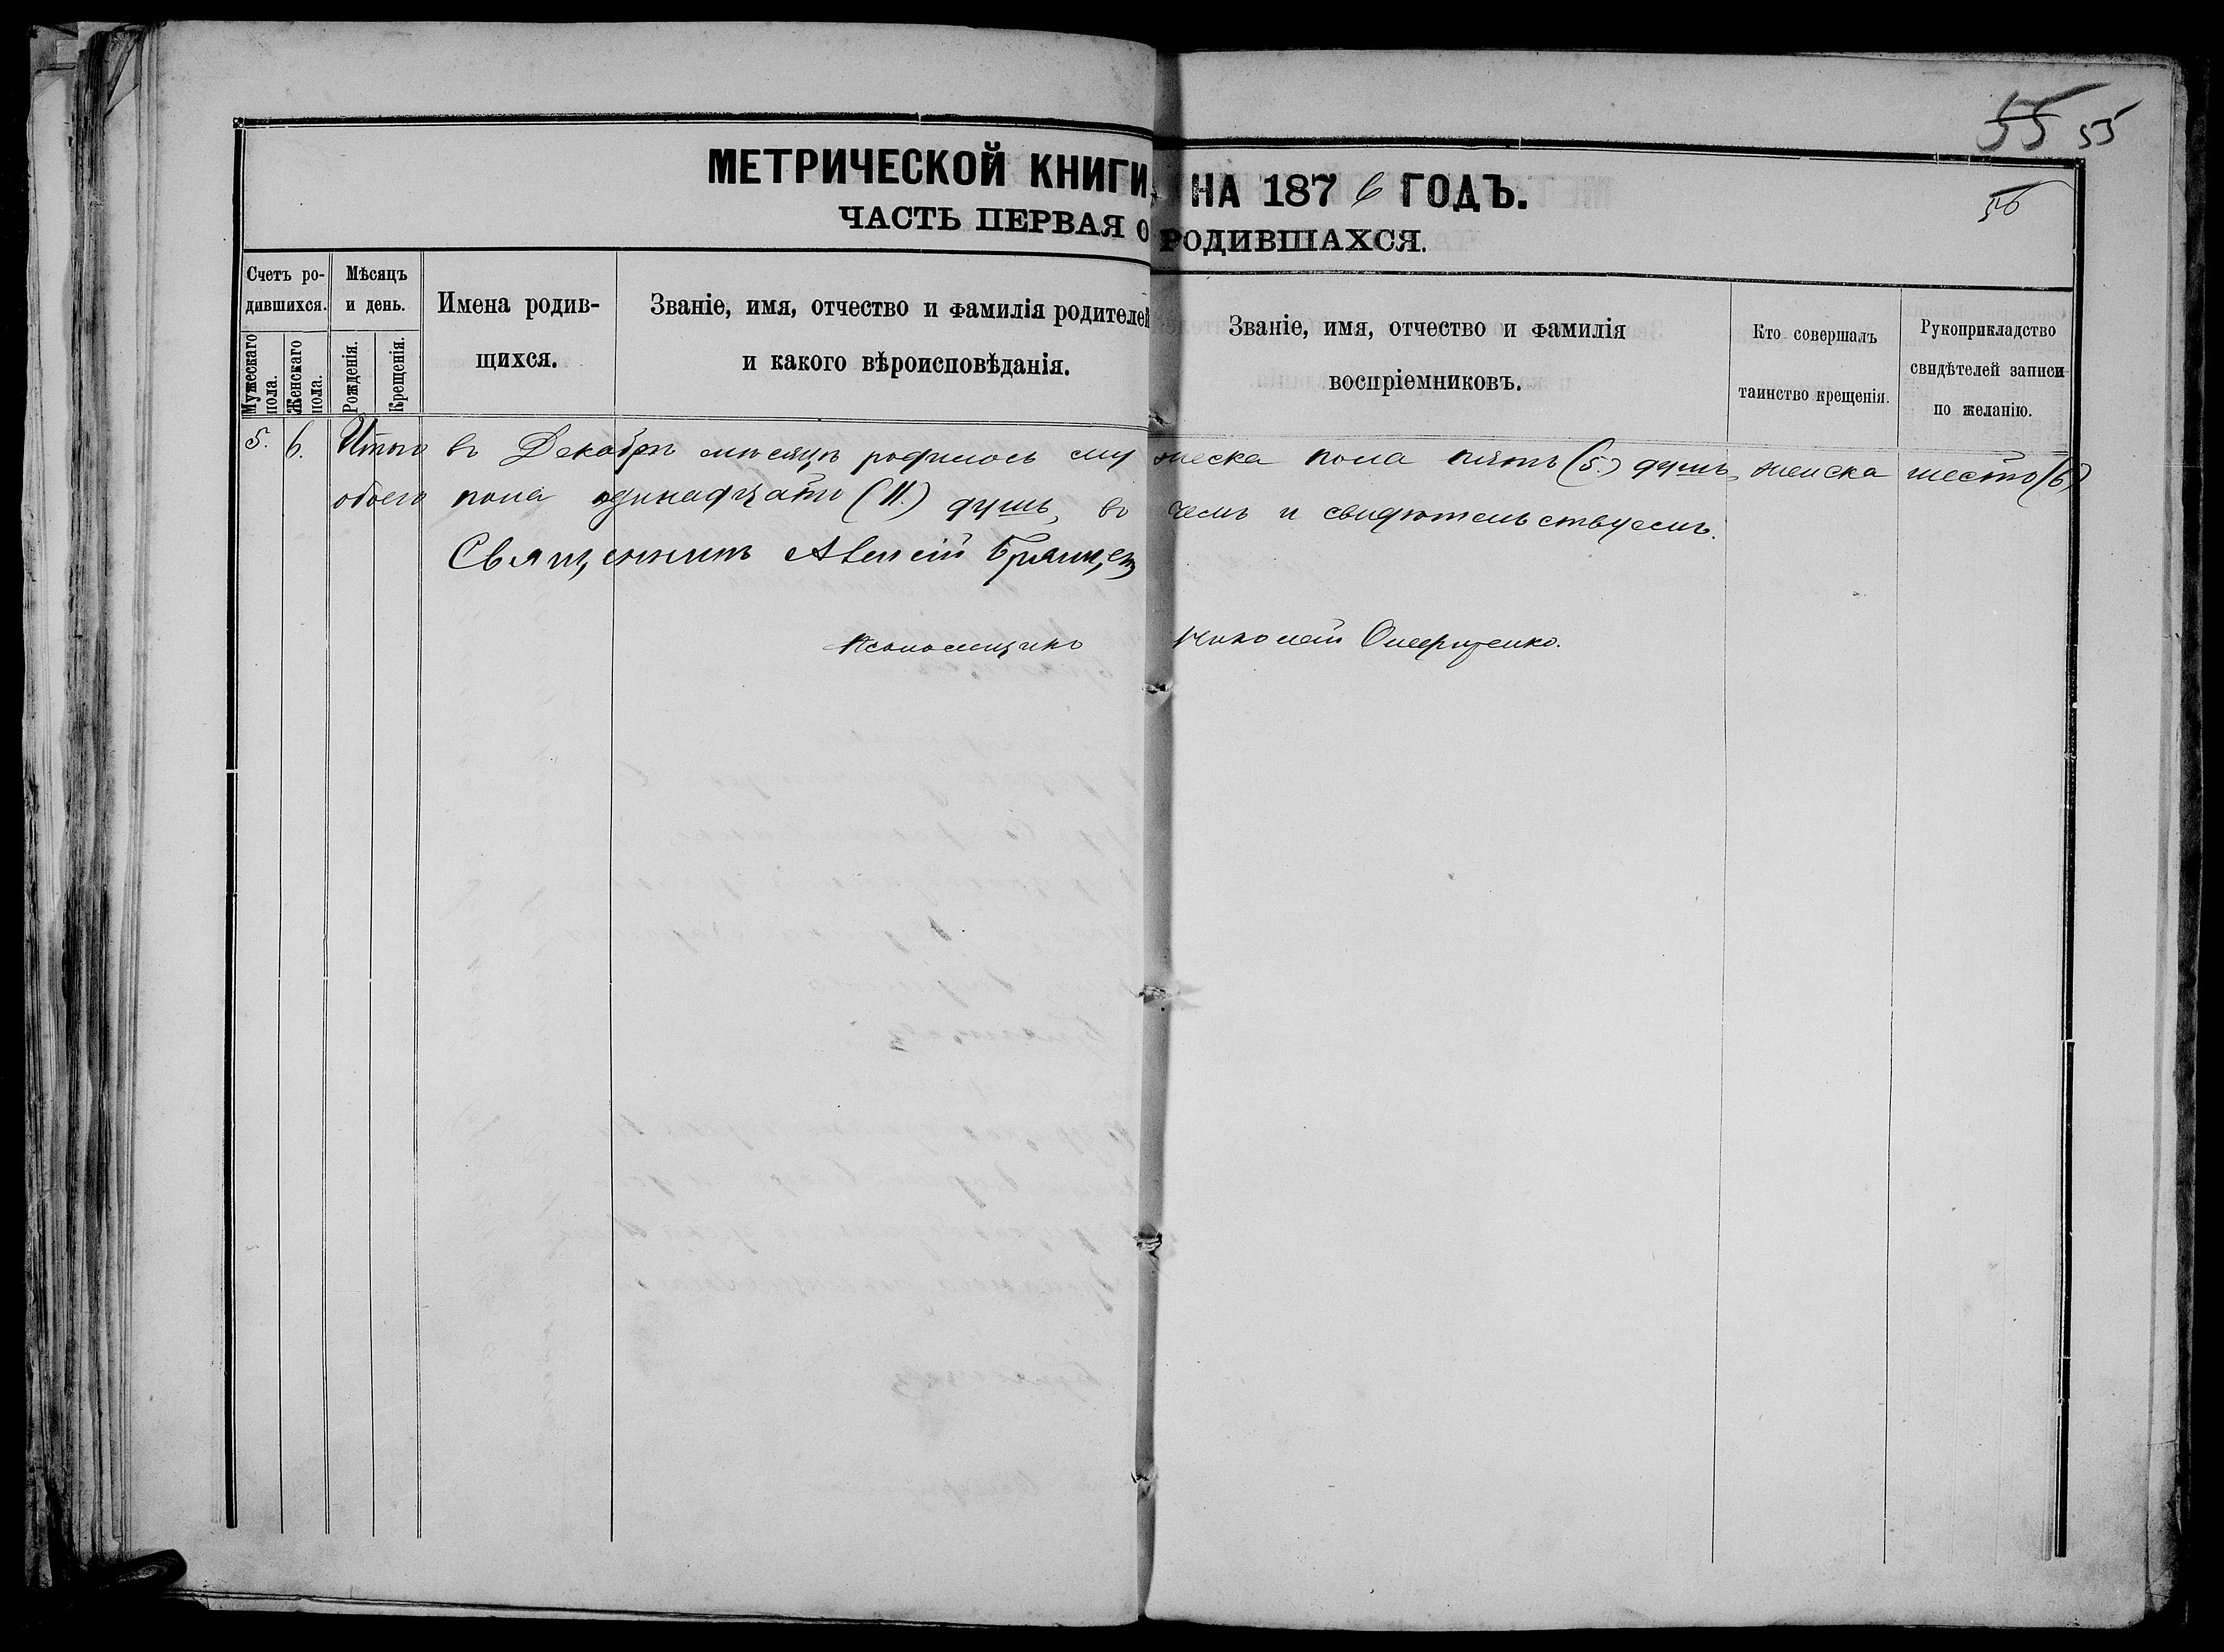 55 55
56
МЕТРИЧЕСКОЙ КНИГИ, НА 1876 ГОДЪ.
ЧАСТЬ ПЕРВАЯ О РОДИВШАХСЯ.
Счетъ ро-
дившихся.
Мужескаго пола.
Женскаго пола.
Мѣсяцъ
и день.
Рожденія.
Крещенія.
Имена родив-
щихся.
Званіе, имя, отчество и фамилія родителей
и какого вѣроисповѣданія.
Званіе, имя, отчество и фамилія
воспріемниковъ.
Кто совершалъ
таинство крещенія.
Рукоприкладство
свидѣтелей записи
по желанію.
5. 6. Итого въ Декабрѣ мѣсяцѣ родилось мужеска пола пять (5.) душъ, женска шесть (6)
обоего пола одинадцать (11.) душъ, въ чемъ и свидѣтельствуемъ.
Священникъ Алексій
Псаломщикъ Николай